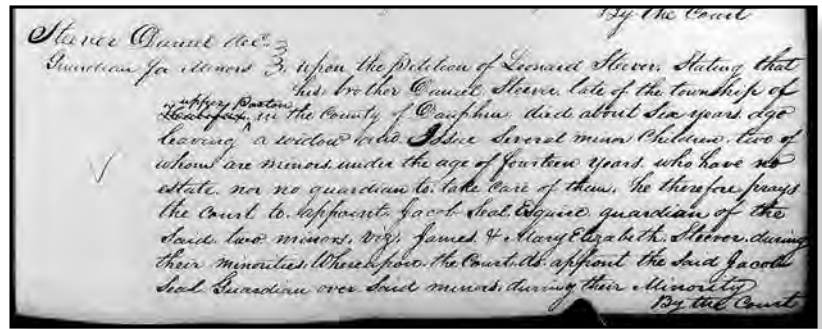 By the Court
Steever Daniel decd
Guardian for Minors } upon the Petition of Leonard Steever, Stating that
his brother Daniel Steever late of the township of
upper Paxton
in the County of Dauphin died about Six years ago
leaving a widow and Issue Several minor Children, two of
whom are minors under the age of fourteen years who have no
estate nor no guardian to take care of them, he therefore prays
the Court to appoint Jacob Seal Esquire guardian of the
Said two minors, viz, James & Mary Elizabeth Steever during
their minorities, Whereupon the Court do appoint the Said Jacob
Seal Guardian over Said minors during their Minority
By the Court